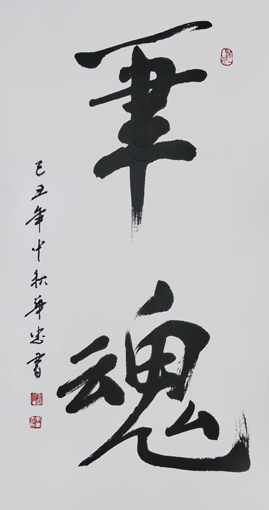 軍魂
己丑年中秋華忠書